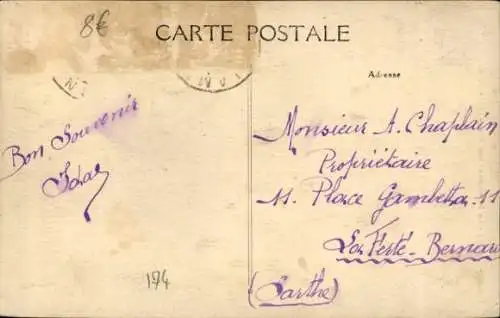 8€
CARTE POSTALE
Adresse
Bon Souvenir
Monsieur A. Chaplain
Propriétaire
11. Place Gambetta. 11
La Ferté-Bernard
(Sarthe)
194